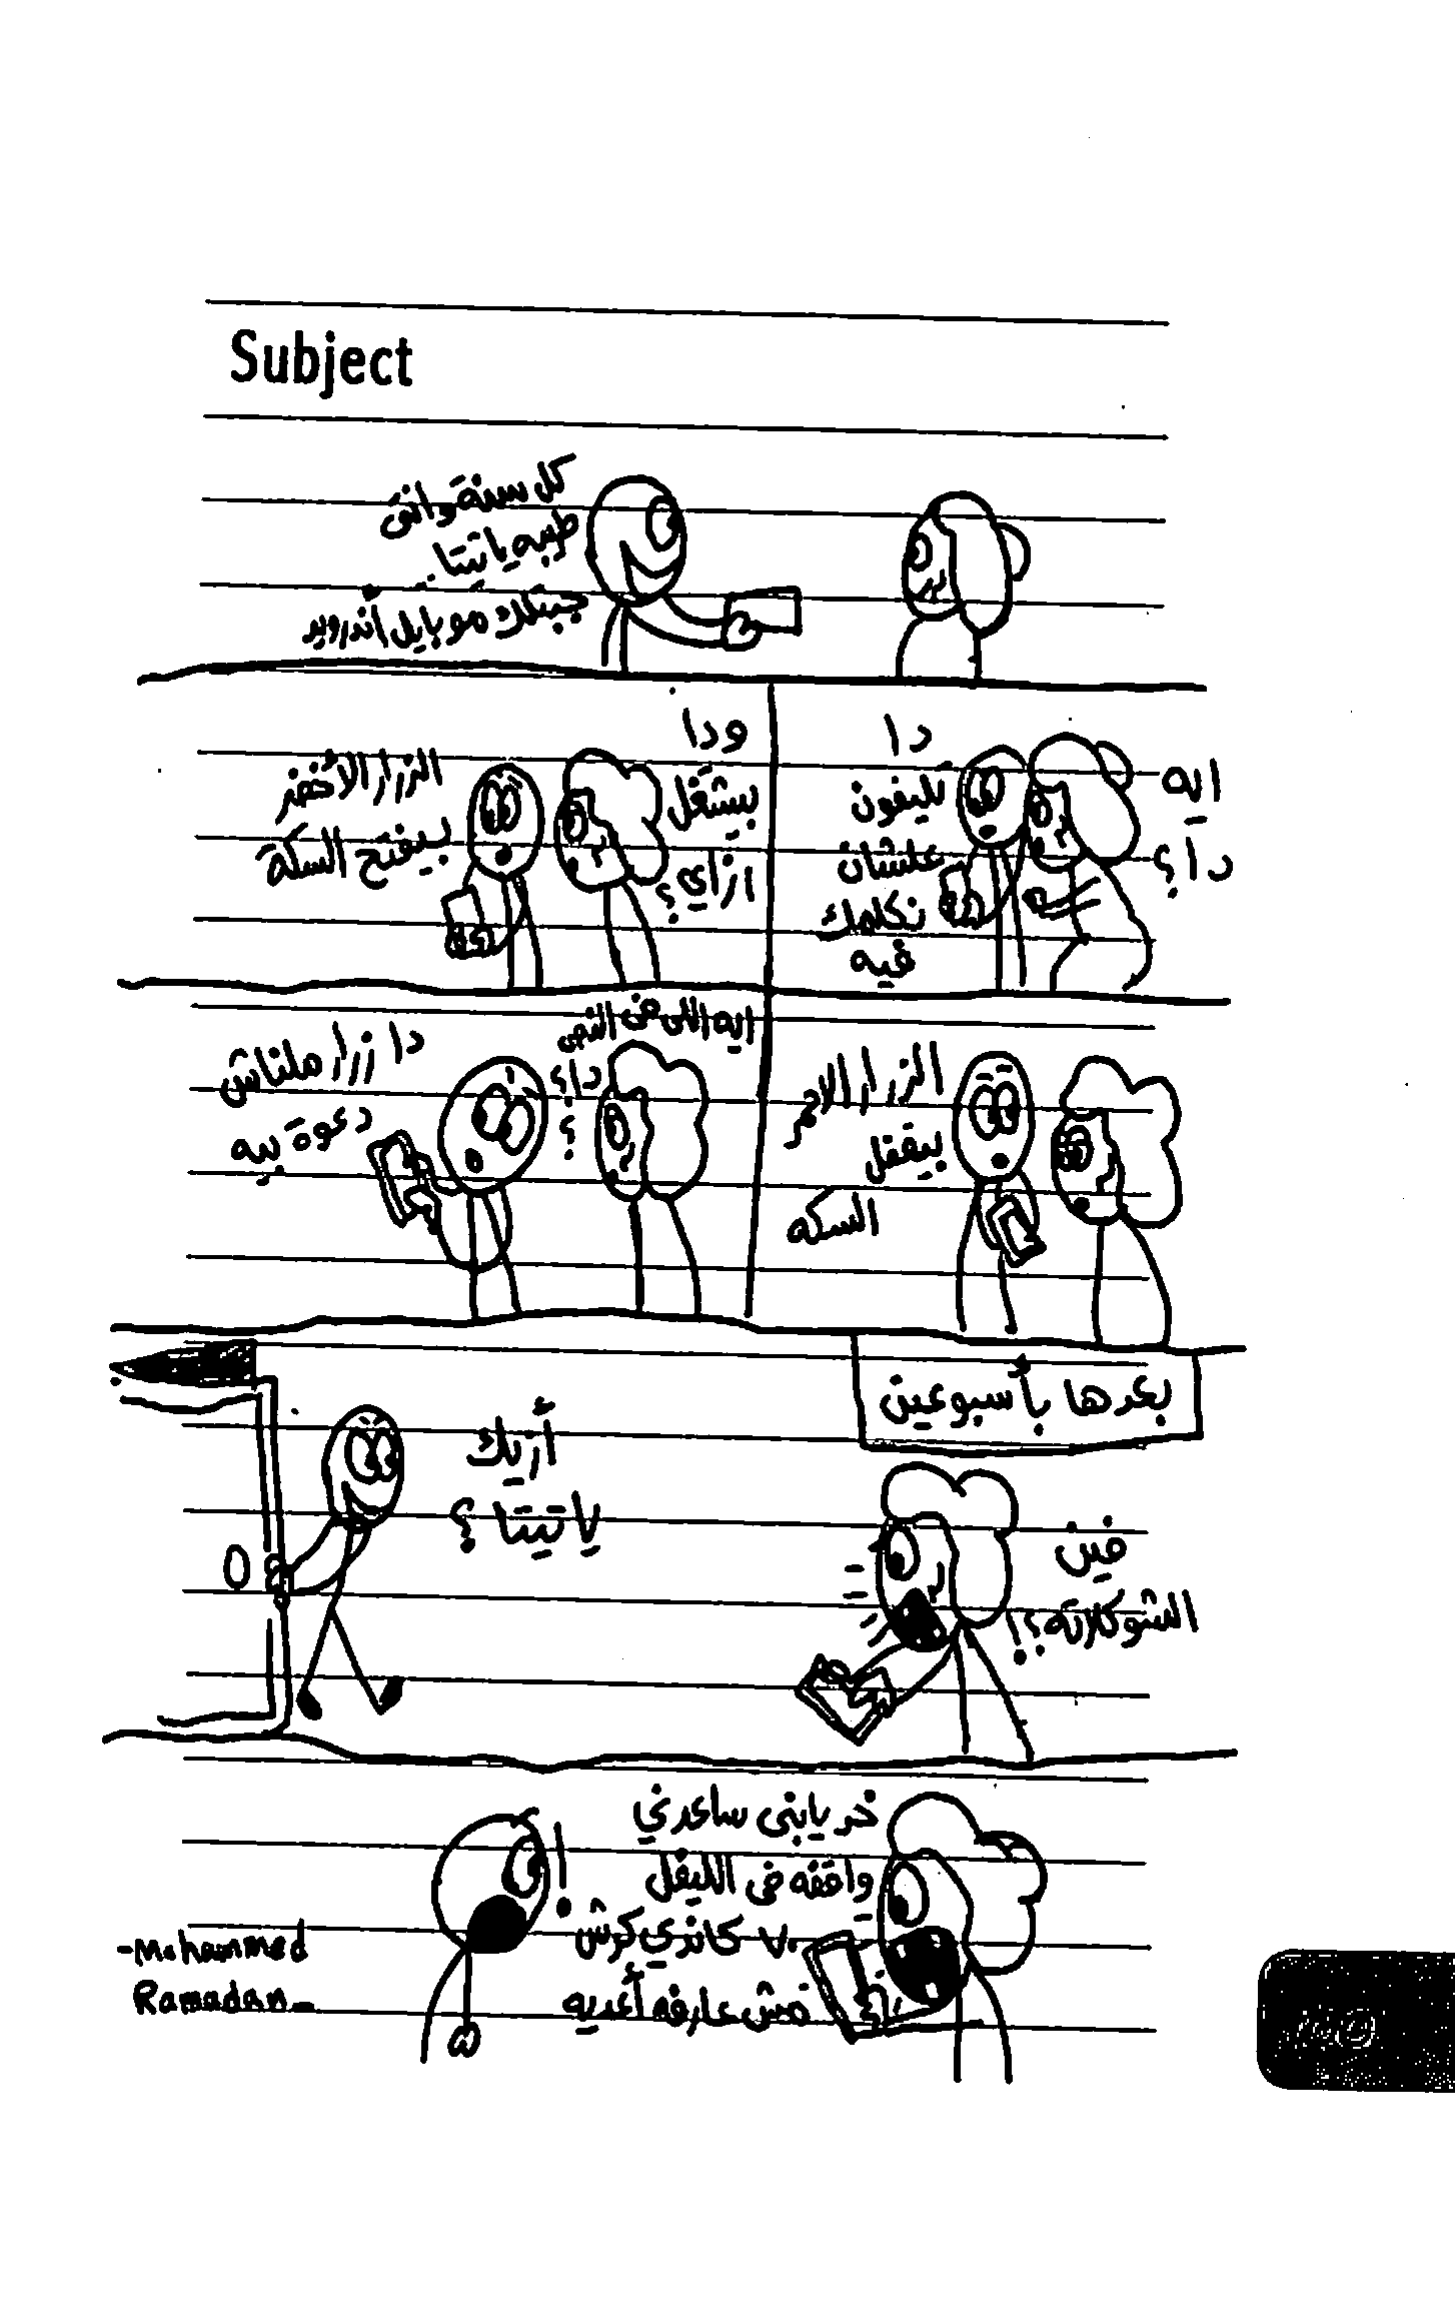 Subject
كل سنة وانتى
طيبه يا تيتا
جبتلك موبايل أندرويد
ايه
دا؟
دا
تليفون
علشان
نكلمك
فيه
ودا
بيشتغل
ازاي؟
الزرار الأخضر
بيفتح السكة
الزرار الاحمر
بيقفل
السكه
ايه اللى فى النص
دا؟
؟
دا زرار ملناش
دعوة بيه
بعدها بأسبوعين
أزيك
يا تيتا؟
فين
الشوكلاتة؟!
خد يابنى ساعدني
واقفه فى الليفل
٧٠ كاندي كرش
مش عارفه أعديه
!
-Mohammed
Ramadan-